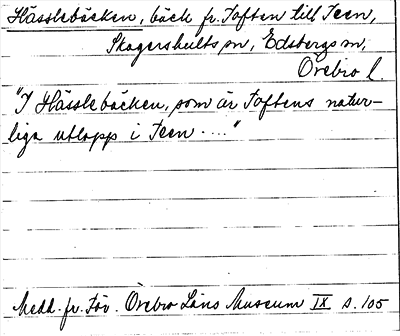 Hässlebäcken, bäck fr. Toften till Teen,
Skagershults sn, Edsbergs sn,
Örebro l.
"I Hässlebäcken, som är Toftens natur-
liga utlopp i Teen ...."
Medd. fr. För. Örebro Läns Museum IX s. 105